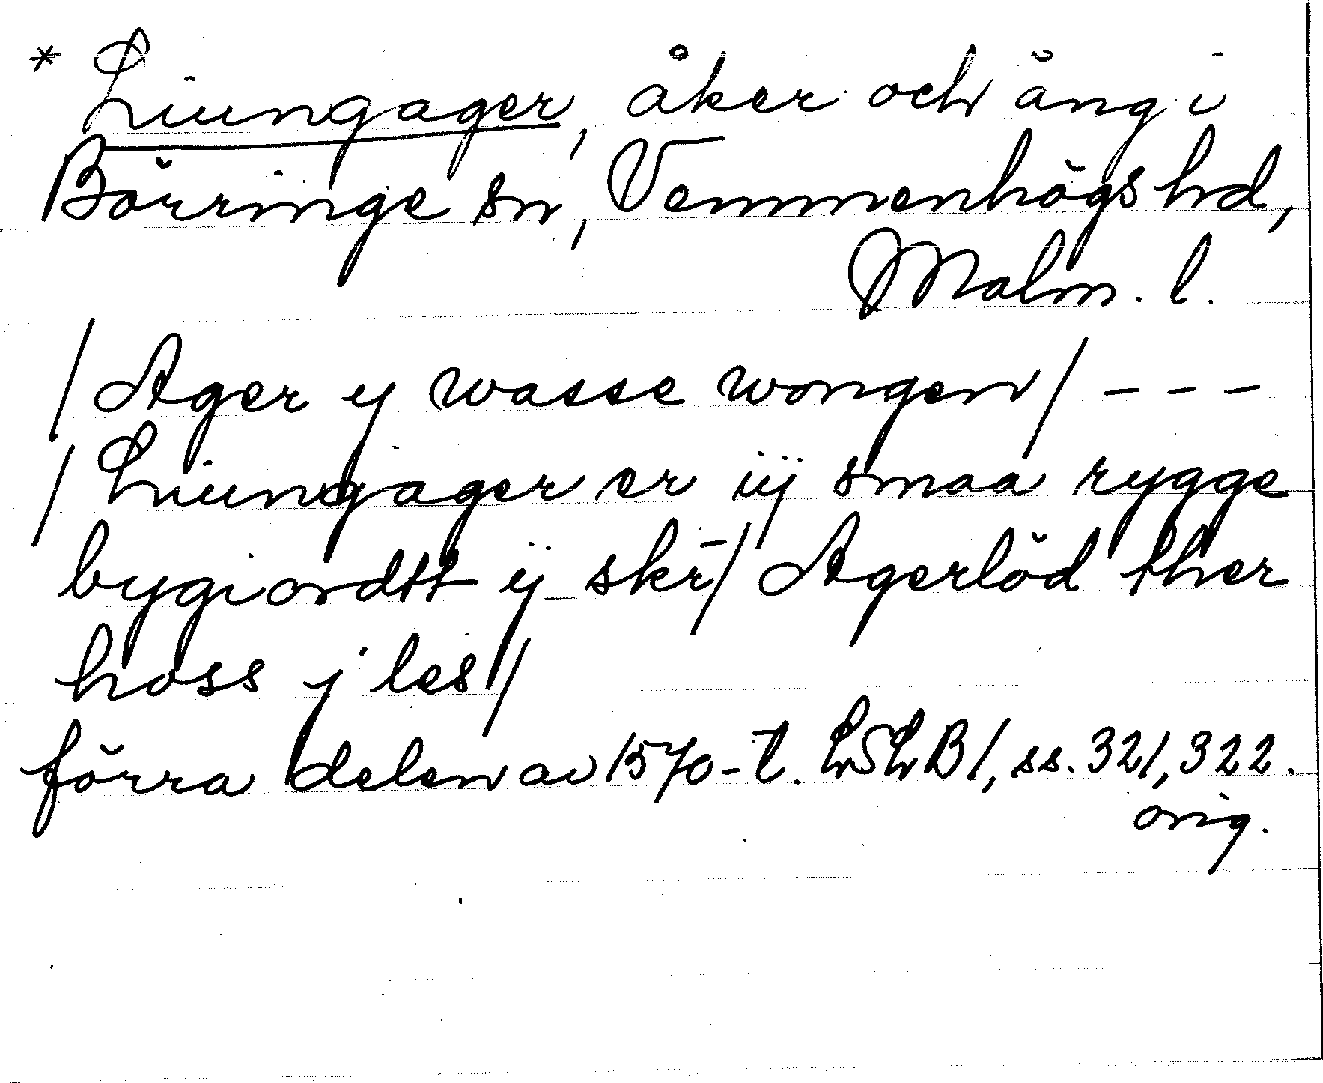 * Liungager, åker och äng i
Börringe sn, Vemmenhögs hd,
Malm. l.
/Ager y wasse wongen/ - - -
/Liungager er iij smaa rygge
bygiordtt ij skr̄/ Agerlöd ther
hoss j les/
förra delen av 1570-t. LSLB1, ss. 321, 322.
orig.